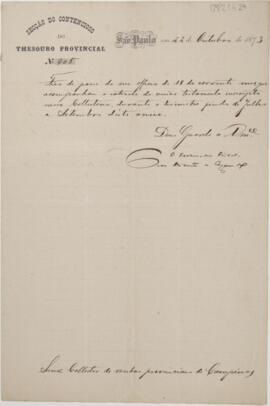 SECÇÃO DO CONTENCIOSO
DO
THESOURO PROVINCIAL
São Paulo em 22 de Outubro de 1873
Nº
Fico de posse de seu officio de 18 do corrente em que
acompanhou o extracto do unico testamento inscripto
nessa Collectoria, durante o trimestre findo de Julho
a Setembro deste anno.
Deus Guarde a Vmcê
O
Senr Collector de rendas provinciaes de Campinas